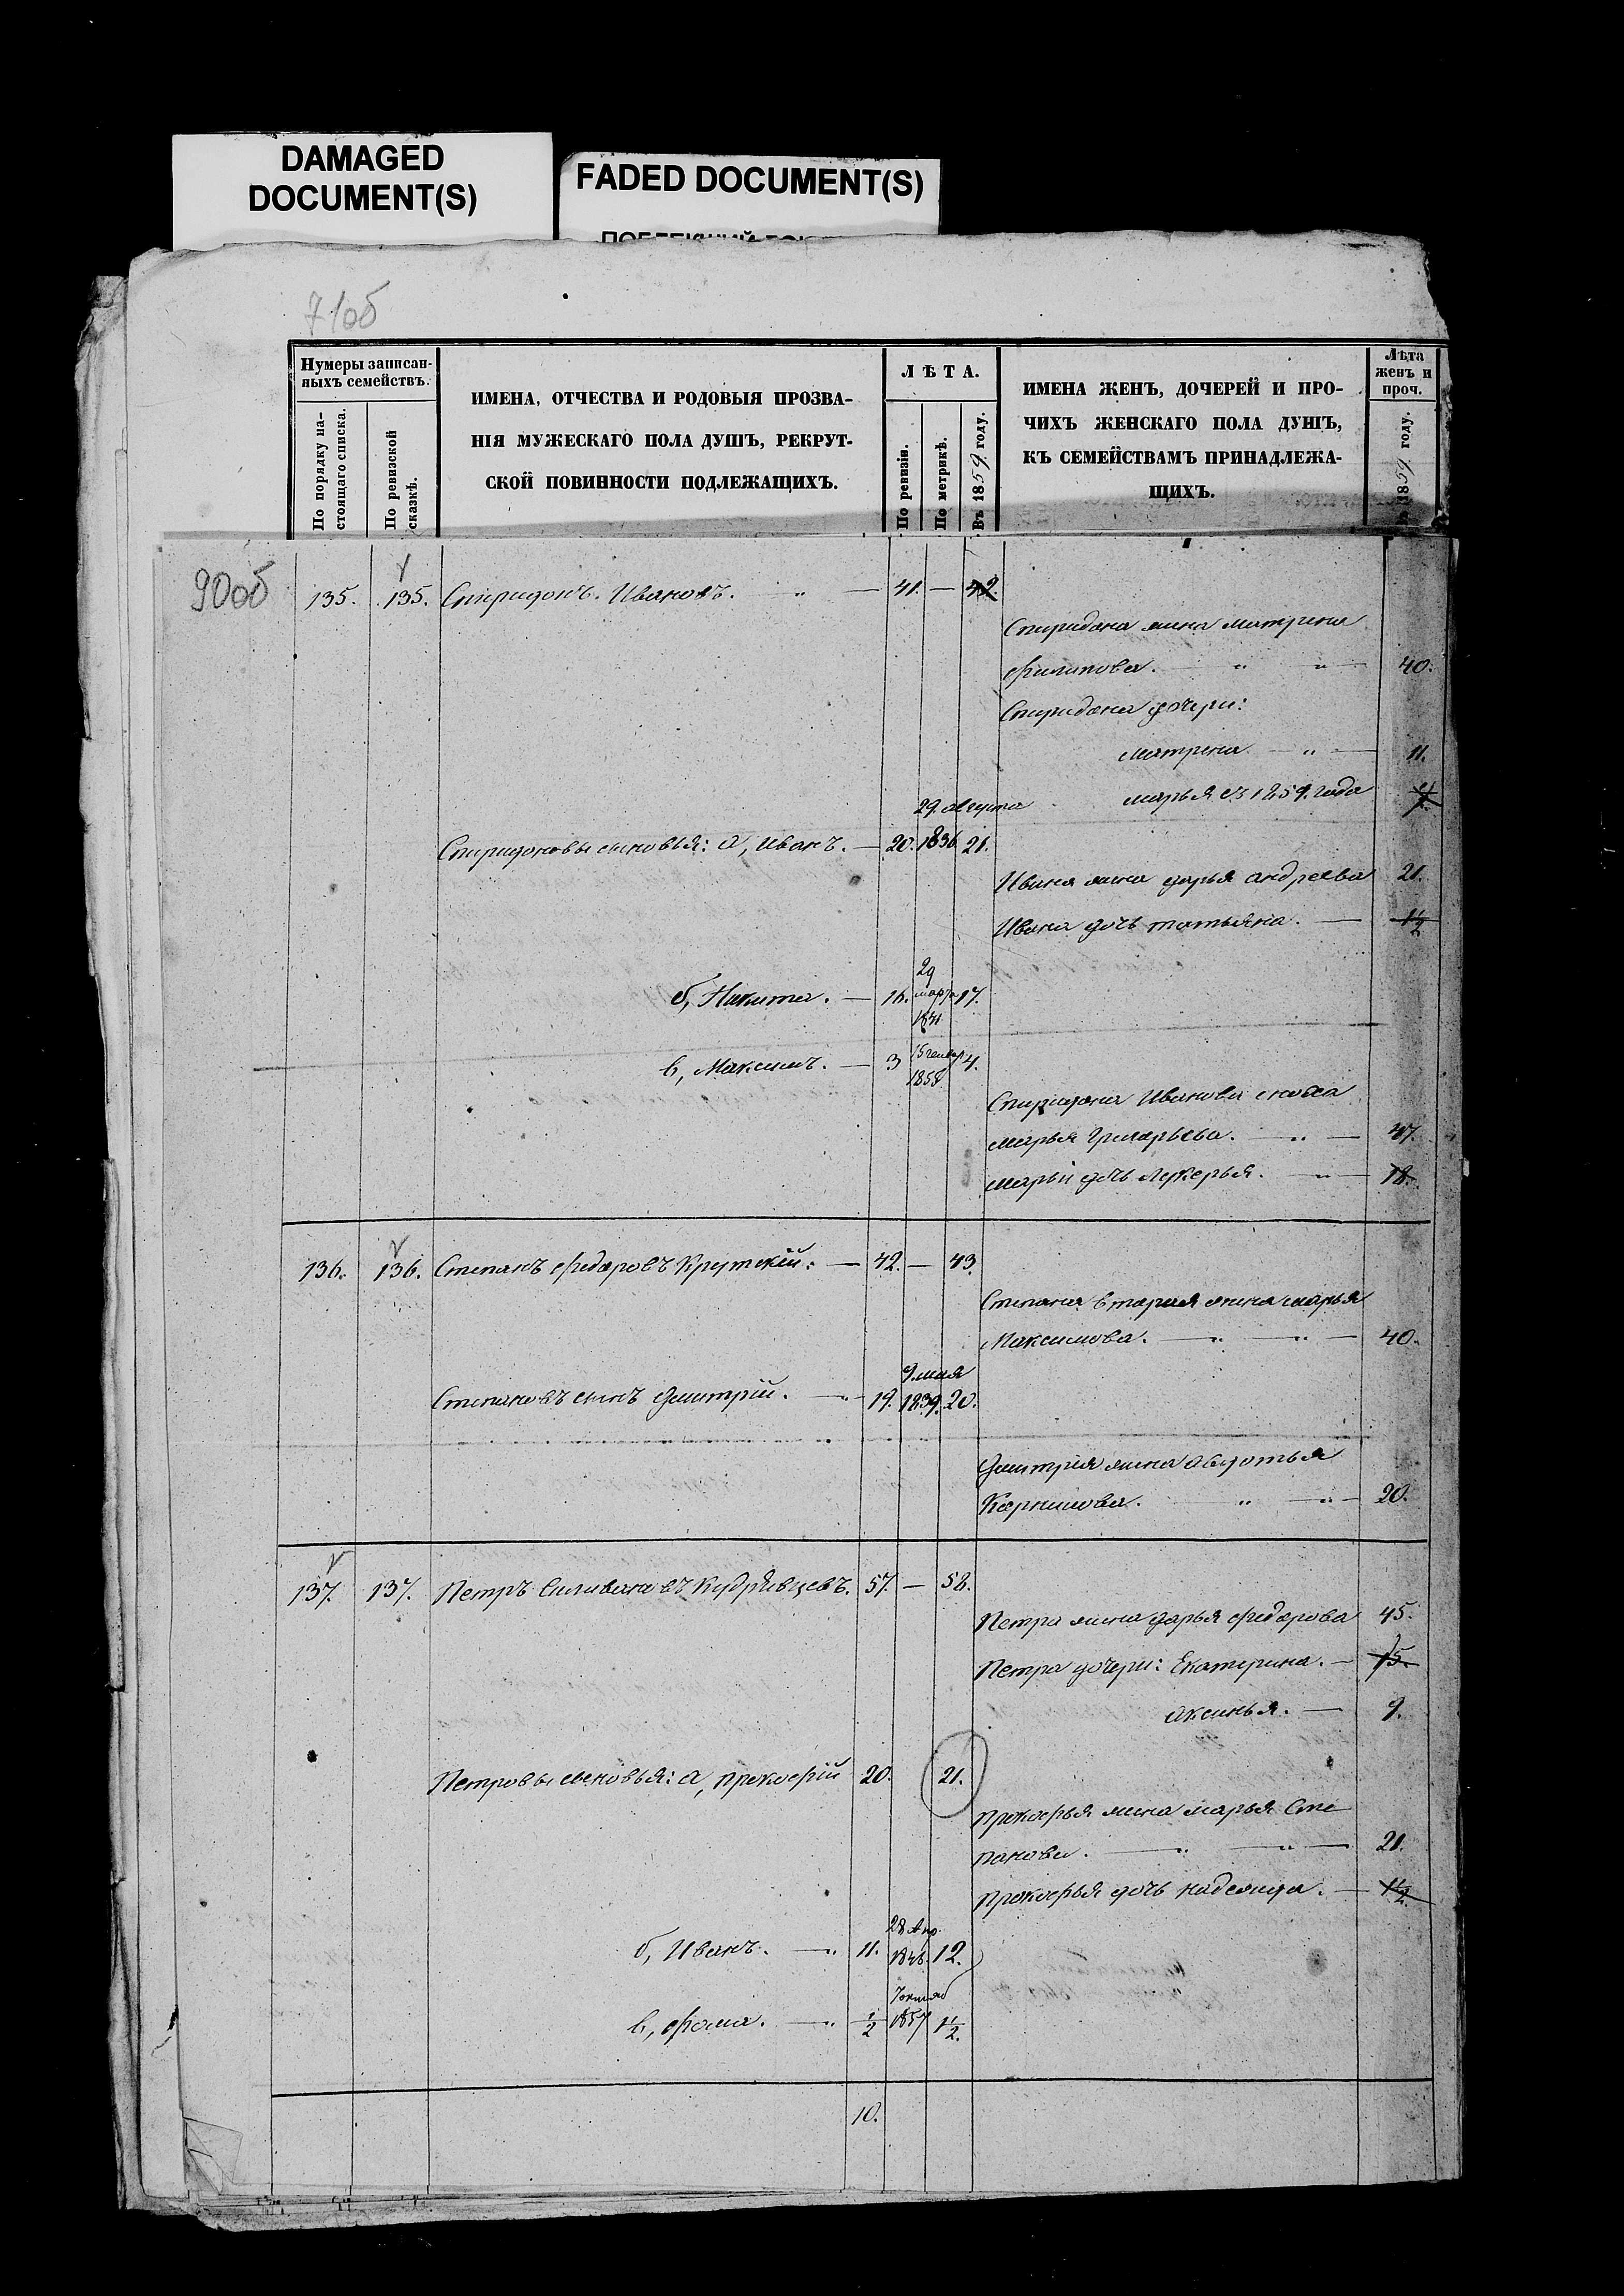 DAMAGED
DOCUMENT(S)
FADED DOCUMENT(S)
71об
Нумеры записан-
ныхъ семействъ.
По порядку на-
стоящаго списка.
По ревизской
сказкѣ.
ИМЕНА, ОТЧЕСТВА И РОДОВЫЯ ПРОЗВА-
НІЯ МУЖЕСКАГО ПОЛА ДУШЪ, РЕКРУТ-
СКОЙ ПОВИННОСТИ ПОДЛЕЖАЩИХЪ.
ЛѢТА.
По ревизіи.
По метрикѣ.
Въ 1859 году.
ИМЕНА ЖЕНЪ, ДОЧЕРЕЙ И ПРО-
ЧИХЪ ЖЕНСКАГО ПОЛА ДУШЪ,
КЪ СЕМЕЙСТВАМЪ ПРИНАДЛЕЖА-
ЩИХЪ.
Лѣта
женъ и
проч.
1859 году.
90об
135. 135. Спиридонъ Ивановъ. " — 41. — 42.
Спиридона жена матрена
филипова. — " " — 40.
Спиридона дочери:
матрена — " — 11.
марья съ 1859. года
29. августа
Спиридоновы сыновья: а, иванъ. — 20. 1836 21.
Ивана жена дарья андреева 21.
Ивана дочь татьяна. — 1½
29
б, Никита. — 16. марта 17.
1841
в, Максимъ. — 3 15 генвар 4.
1855
Спиридона Иванова
марья Григорьева. — " — 47.
марьи дочь лукерья. — " — 18.
136. 136. Степанъ федоровъ Крутскій. — 42. — 43.
Степана вторая жена марья
Максимова. — " — " — 40.
9. мая
Степановъ сынъ дмитрій. — " 19. 1839. 20.
дмитрия жена авдотья
Карнилова. " — " — 20.
137. 137. Петръ Силивановъ Кудрявцевъ. 57. — 58.
Петра жена дарья федорова 45.
Петра дочери: Екатерина. — 15.
аксинья. — 9.
Петровы сыновья: а, прокофій 20. 21.
прокофья жена марья Сте
панова. — " — " — 21.
прокофья дочь надежда. — 1½.
28 Апр.
б, Иванъ. — " 11. 1846. 12.
7 октяб
в, фома. — " ½ 1857 1½.
10.